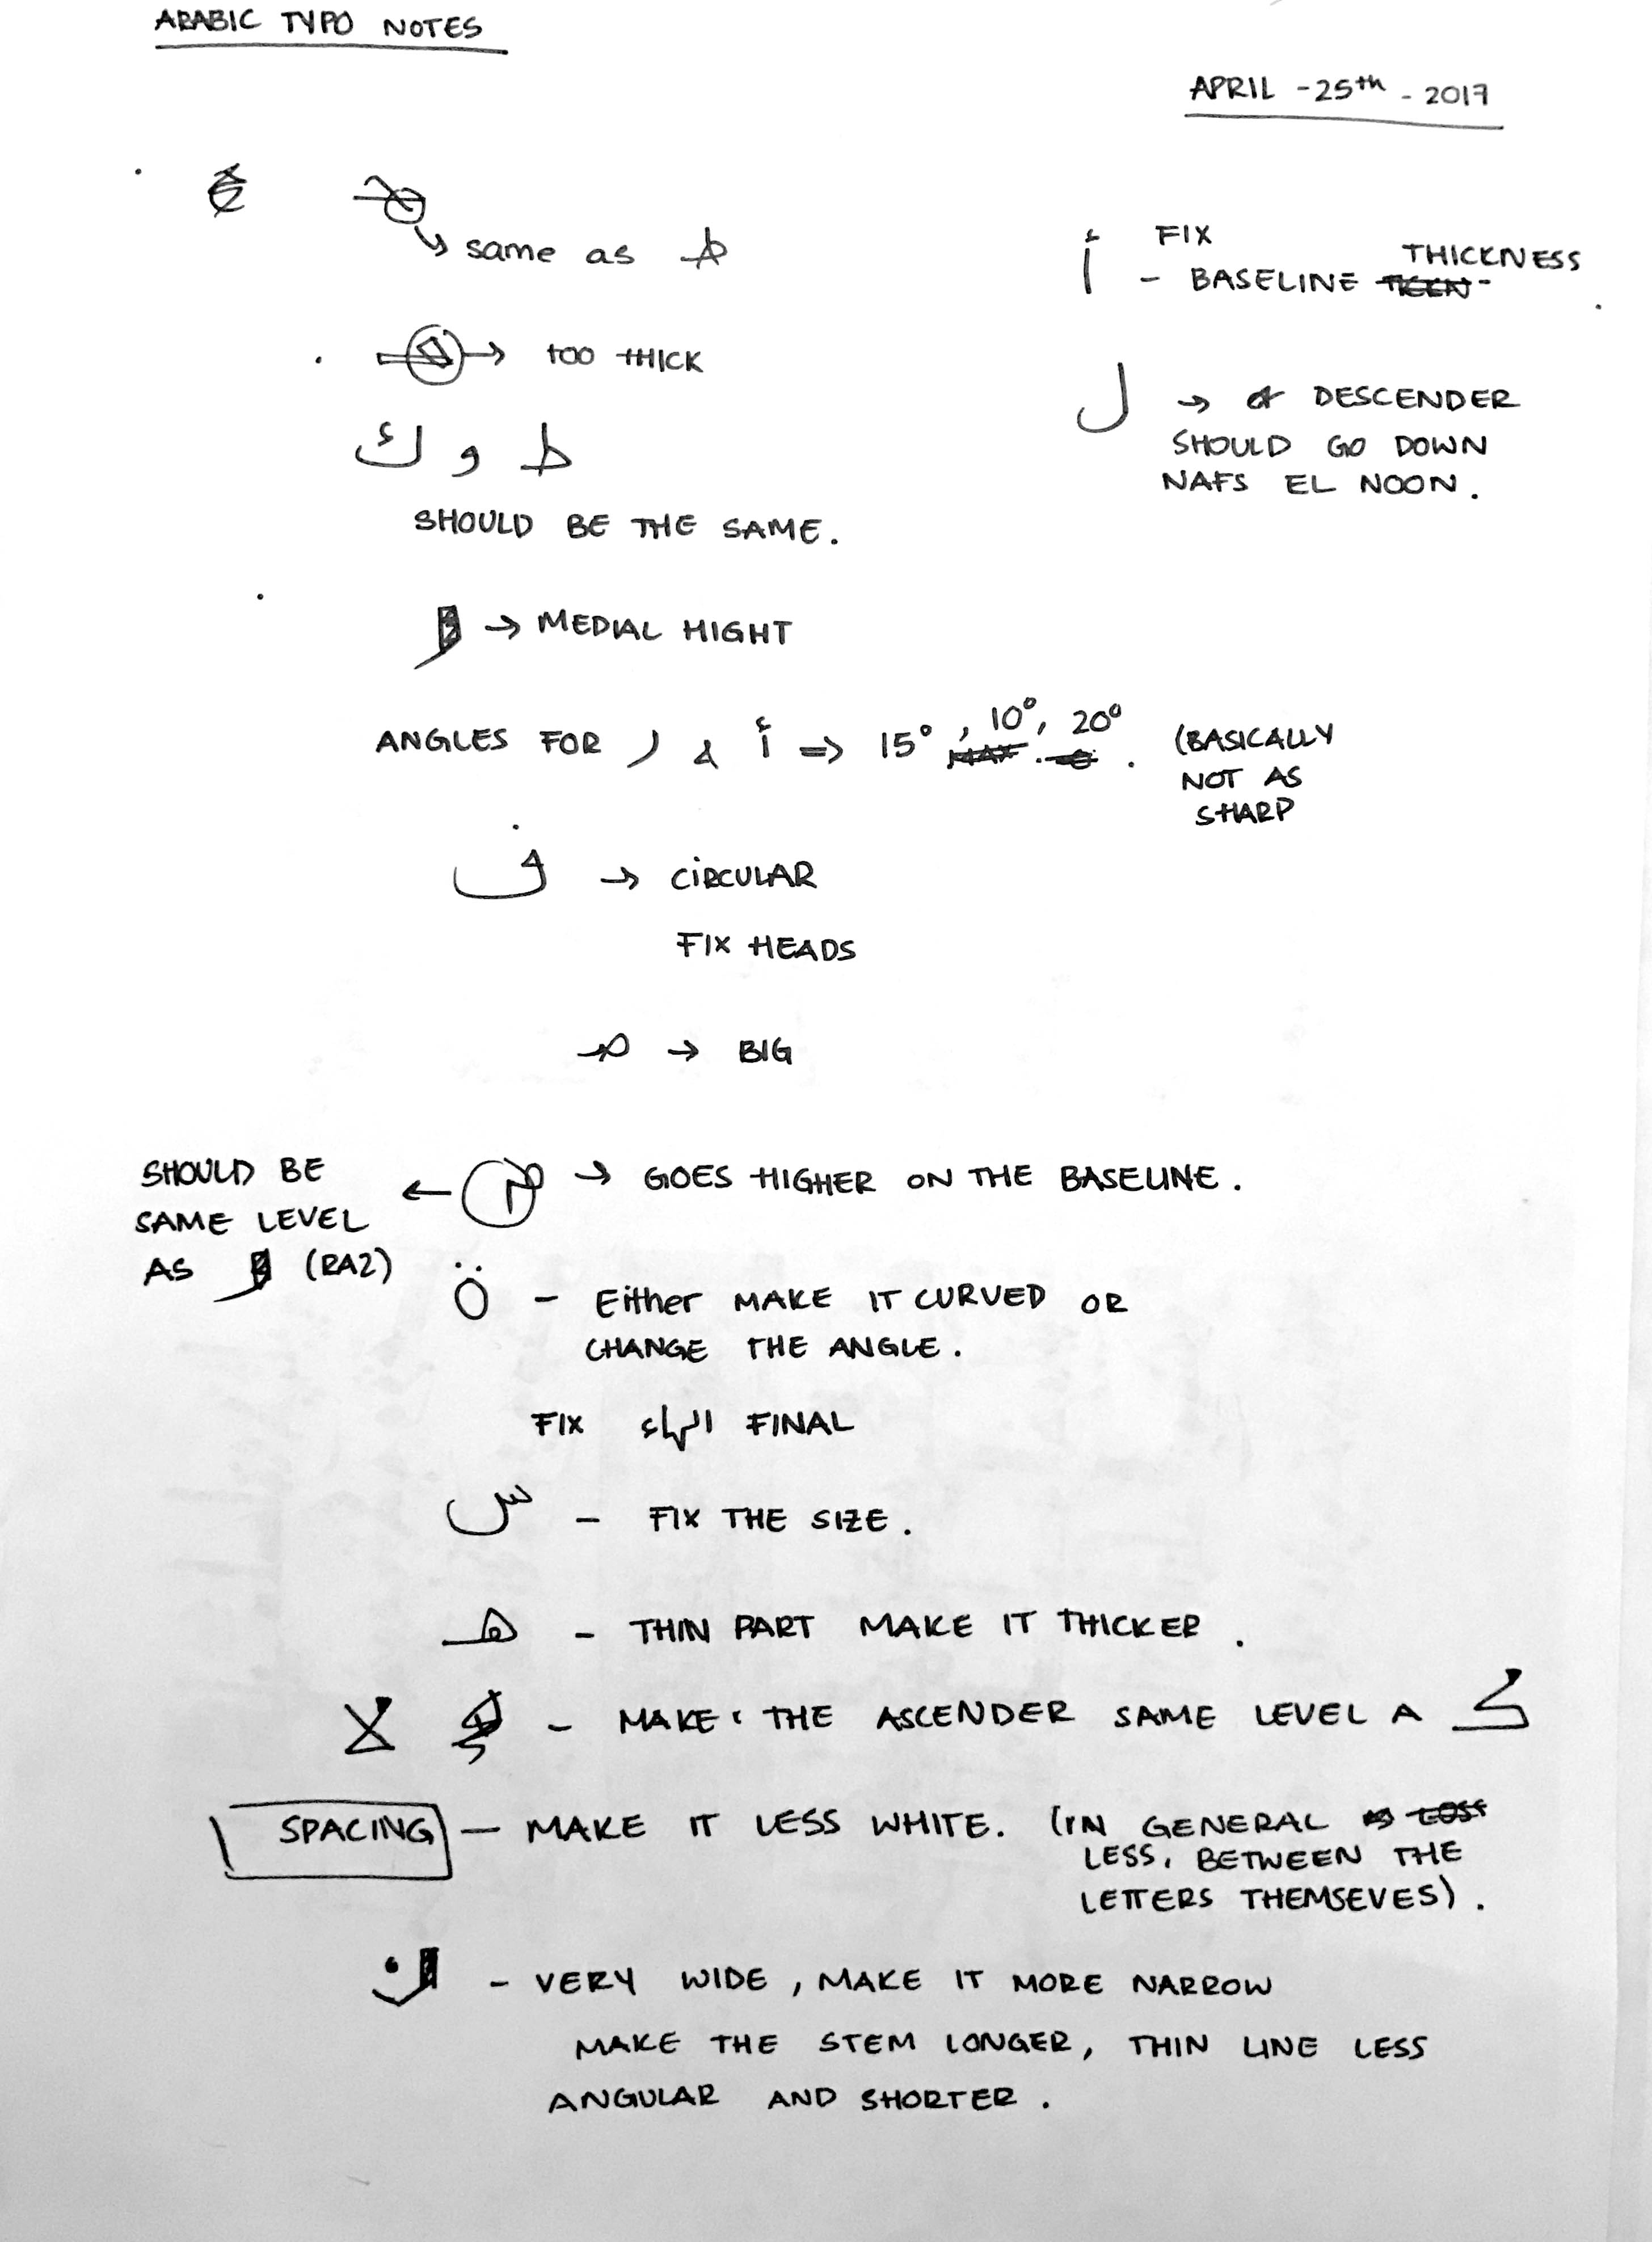 ARABIC TYPO NOTES
APRIL -25th - 2017
same as
أ FIX
- BASELINE THICKNESS
→ TOO THICK
ل → DESCENDER
SHOULD GO DOWN
NAFS EL NOON.
ط و ك
SHOULD BE THE SAME.
→ MEDIAL HIGHT
ANGLES FOR ر & أ => 15°, 10°, 20°. (BASICALLY
NOT AS
SHARP
ف → CIRCULAR
FIX HEADS
→ BIG
SHOULD BE
SAME LEVEL
AS ر (RA2)
→ GOES HIGHER ON THE BASELINE.
ة - Either MAKE IT CURVED OR
CHANGE THE ANGLE.
FIX الهاء FINAL
س - FIX THE SIZE.
هـ - THIN PART MAKE IT THICKER.
لا - MAKE THE ASCENDER SAME LEVEL A كـ
SPACING - MAKE IT LESS WHITE. (IN GENERAL
LESS, BETWEEN THE
LETTERS THEMSEVES).
ن - VERY WIDE, MAKE IT MORE NARROW
MAKE THE STEM LONGER, THIN LINE LESS
ANGULAR AND SHORTER.